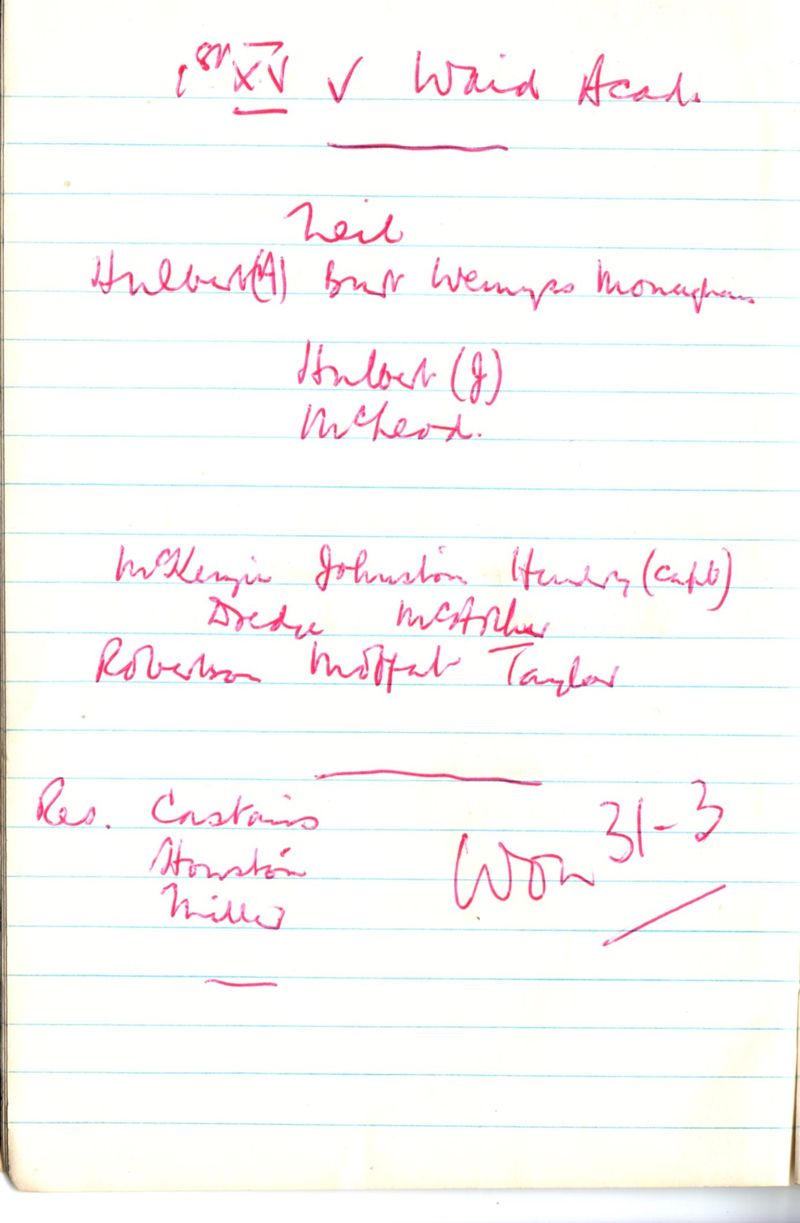 1st XV v Waid Acad.
Neil
Hulbert (A) Burt Wemyss Monaghan
Hulbert (J)
McLeod.
McKenzie Johnston Hendry (Capt)
Dredge McArthur
Robertson Moffat Taylor
Res. Carstairs
Houston
Miller
Won 31-3